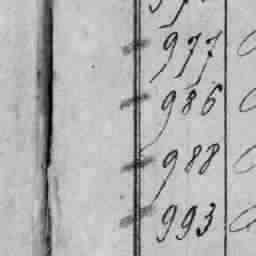 977
986
988
993